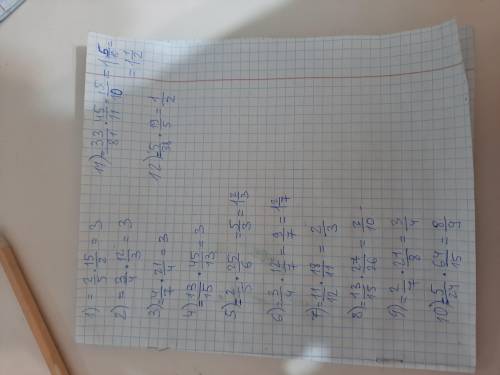 1) = 2/5 · 15/2 = 3
2) = 3/4 · 12/3 = 3
3) = 4/7 · 21/4 = 3
4) = 13/15 · 45/13 = 3
5) = 2/5 · 25/6 = 5/3 = 1 2/3
6) = 3/4 · 12/7 = 9/7 = 1 2/7
7) = 11/12 · 18/11 = 2/3
8) = 13/15 · 27/26 = 9/10
9) = 2/7 · 21/8 = 3/4
10) = 5/24 · 64/15 = 8/9
11) = 33/81 · 45/11 = 15/10 = 1 5/10 =
= 1 1/2
12) = 5/38 · 19/5 = 1/2